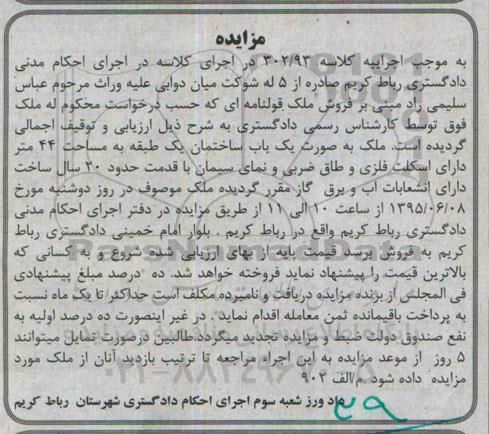 مزایده
به موجب اجراییه کلاسه ۳۰۲/۹۳ در اجرای کلاسه در اجرای احکام مدنی
دادگستری رباط کریم صادره از ۵ له شوکت میان دوابی علیه وراث مرحوم عباس
سلیمی راد مبنی بر فروش ملک قولنامه ای که حسب درخواست محکوم له ملک
فوق توسط کارشناس رسمی دادگستری به شرح ذیل ارزیابی و توقیف اجمالی
گردیده است. ملک به صورت یک باب ساختمان یک طبقه به مساحت ۴۴ متر
دارای اسکلت فلزی و طاق ضربی و نمای سیمان با قدمت حدود ۲۰ سال ساخت
دارای انشعابات آب و برق گاز مقرر گردیده ملک موصوف در روز دوشنبه مورخ
۱۳۹۵/۰۶/۰۸ از ساعت ۱۰ الی ۱۱ از طریق مزایده در دفتر اجرای احکام مدنی
دادگستری رباط کریم واقع در رباط کریم . بلوار امام خمینی دادگستری رباط
کریم به فروش برسد قیمت پایه از بهای ارزیابی شده شروع و به کسانی که
بالاترین قیمت را پیشنهاد نماید فروخته خواهد شد. ده درصد مبلغ پیشنهادی
فی المجلس از برنده مزایده دریافت و نامبرده مکلف است حداکثر تا یک ماه نسبت
به پرداخت باقیمانده ثمن معامله اقدام نماید . در غیر اینصورت ده درصد اولیه به
نفع صندوق دولت ضبط و مزایده تجدید میگردد.طالبین درصورت تمایل میتوانند
۵ روز از موعد مزایده به این اجراء مراجعه تا ترتیب بازدید آنان از ملک مورد
مزایده داده شود .م/الف ۹۰۲
داد ورز شعبه سوم اجرای احکام دادگستری شهرستان رباط کریم
ParsNamadData